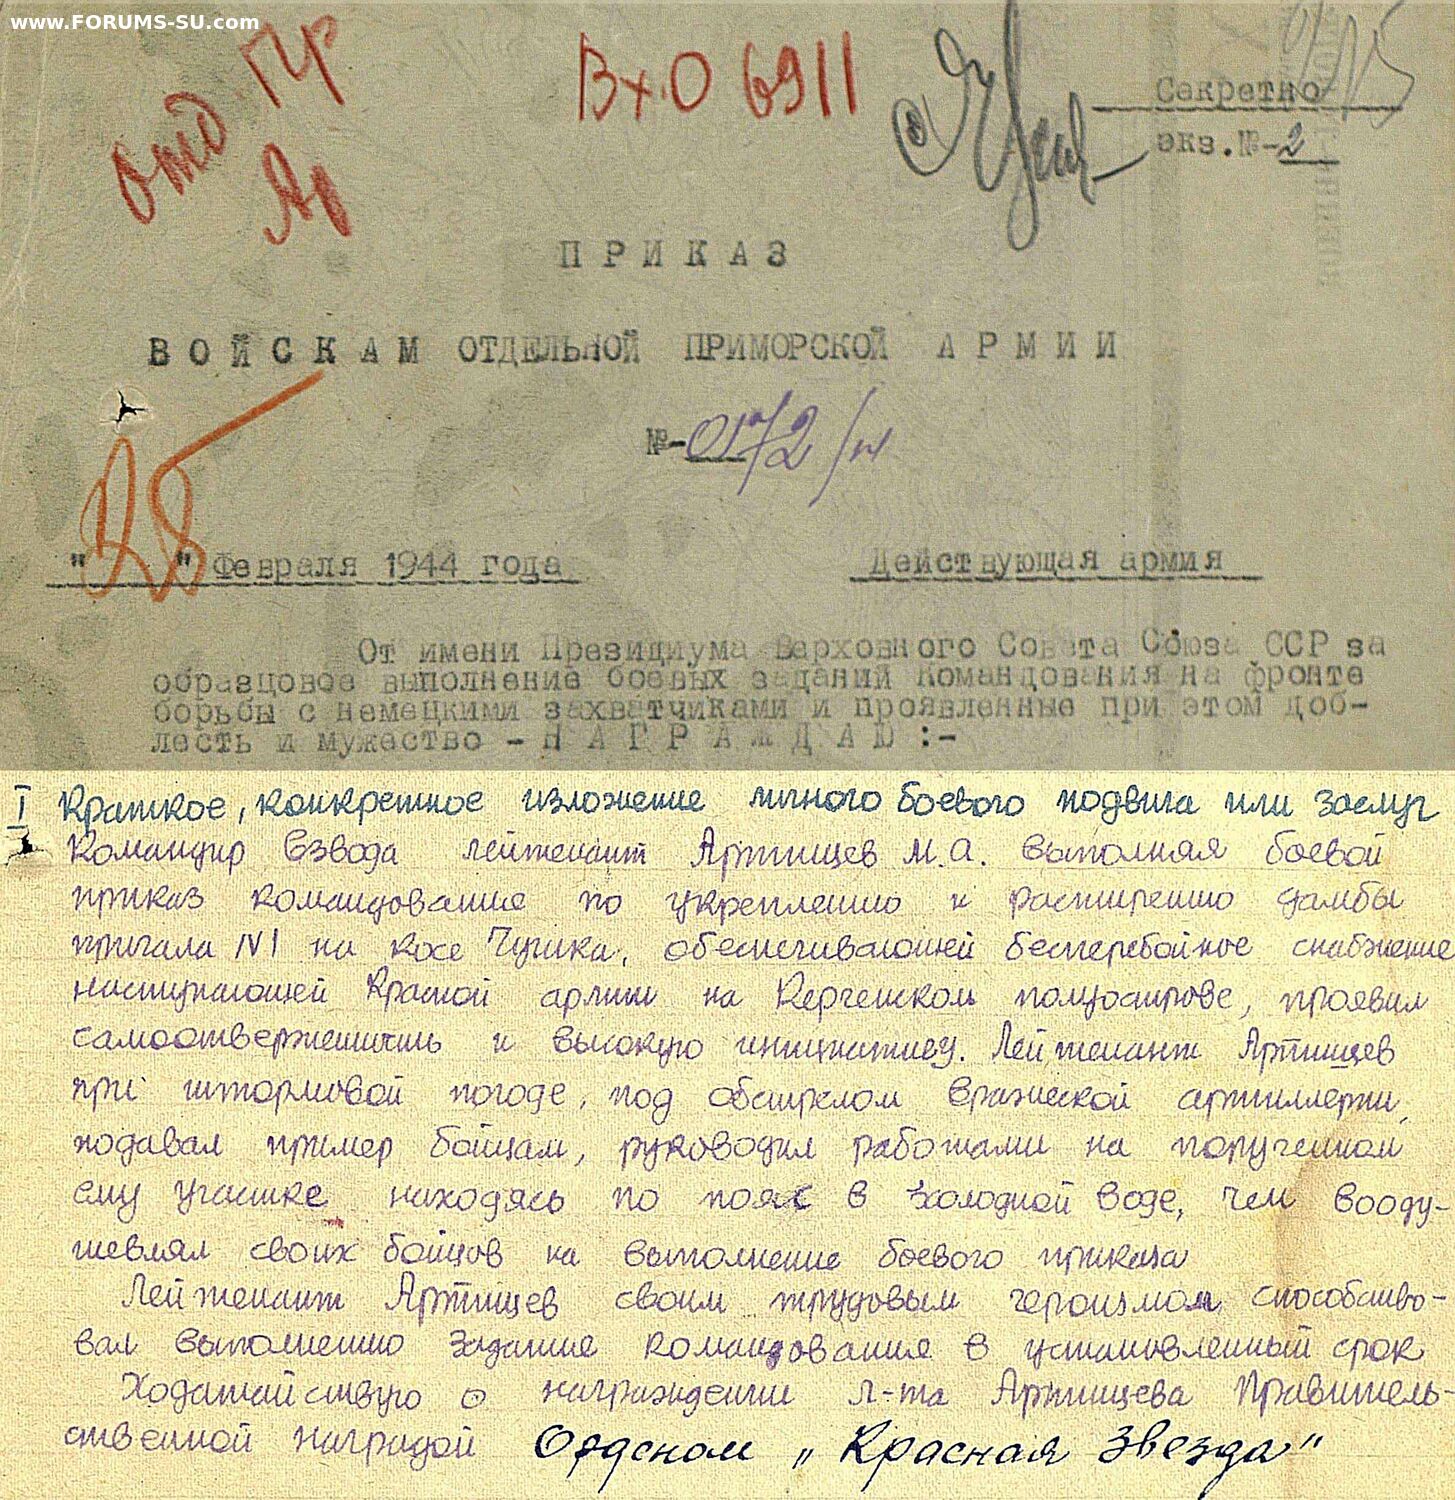 www.FORUMS-SU.com
отд Пр
Вх.О 6911
Секретно
экз.№-2
П Р И К А З
В О Й С К А М ОТДЕЛЬНОЙ ПРИМОРСКОЙ А Р М И И
№-0172/н
"25" Февраля 1944 года Действующая армия
От имени Президиума Верховного Совета Союза ССР за
образцовое выполнение боевых заданий Командования на фронте
борьбы с немецкими захватчиками и проявленные при этом доб-
лесть и мужество - Н А Г Р А Ж Д А Ю :-
I Краткое, конкретное изложение личного боевого подвига или заслуг
Командир взвода лейтенант Артищев М.А. выполняя боевой
приказ командования по укреплению и расширению дамбы
причала №1 на косе Чушка, обеспечивающей бесперебойное снабжение
наступающей Красной армии на Керченском полуострове, проявил
самоотверженность и высокую инициативу. Лейтенант Артищев
при штормовой погоде, под обстрелом вражеской артиллерии,
подавал пример бойцам, руководил работами на порученном
ему участке находясь по пояс в холодной воде, чем вооду-
шевлял своих бойцов на выполнение боевого приказа
Лейтенант Артищев своим трудовым героизмом способство-
вал выполнению задания командования в установленный срок
Ходатайствую о награждении л-та Артищева Правитель-
ственной наградой Орденом „Красная Звезда"